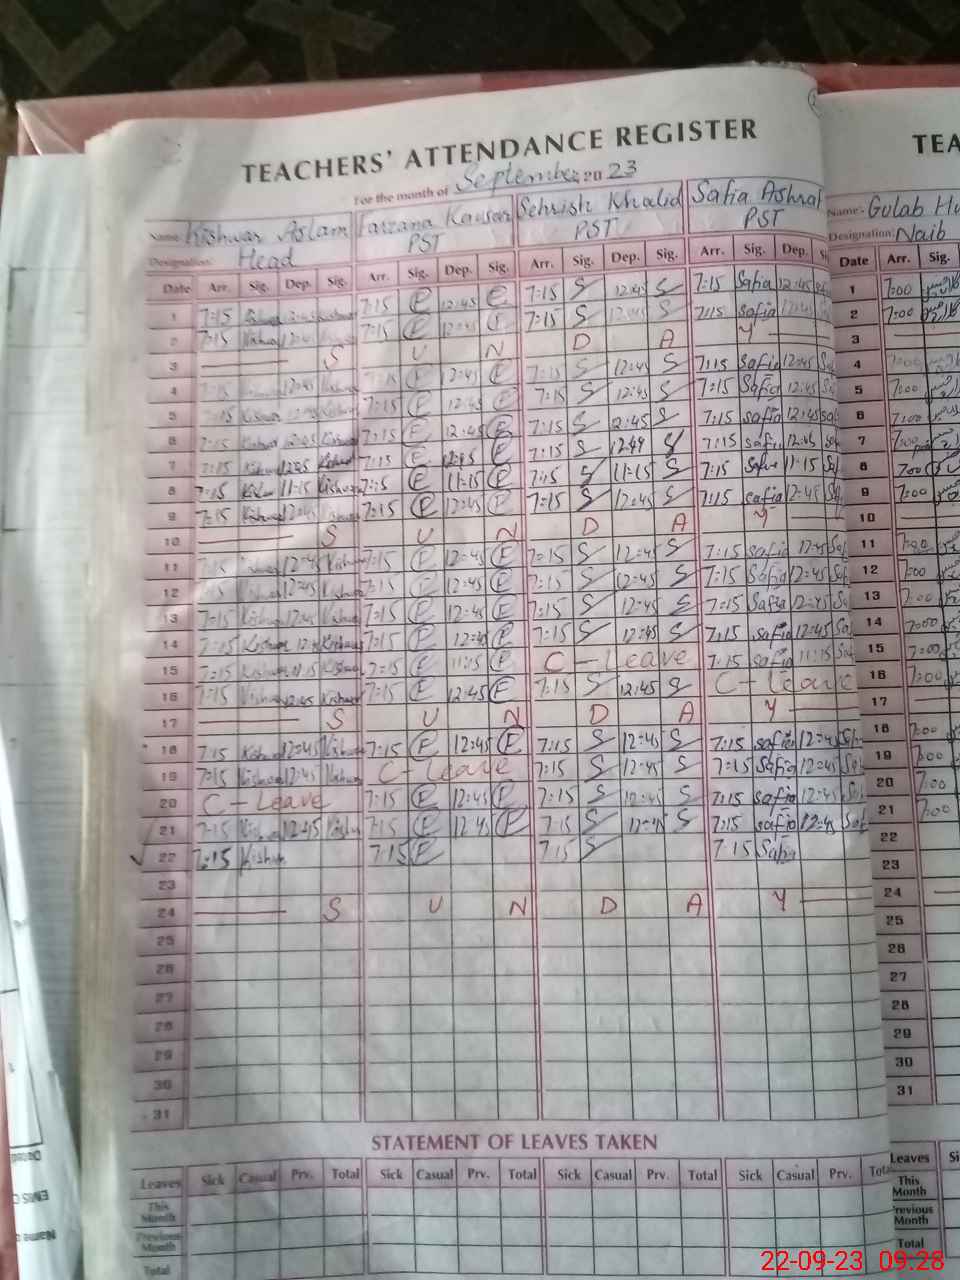 TEACHERS' ATTENDANCE REGISTER TEA
For the month of September 2023
Name: Kishwar Aslam Farzana Kausar Sehrish Khalid Safia Ashraf Name:- Gulab
Designation: Head PST PST PST Designation: Naib
Date Arr. Sig. Dep. Sig. Arr. Sig. Dep. Sig. Arr. Sig. Dep. Sig. Arr. Sig. Dep. Date Arr. Sig.
1 7:15 12:45 7:15 E 12:45 E 7:15 S 12:45 S 7:15 Safia 12:45 1 7:00
2 7:15 Kishwar 12:45 7:15 E 12:45 E 7:15 S 12:45 S 7:15 Safia 12:45 2 7:00
3 S U N D A Y 3
4 12:45 Kishwar 7:15 E 12:45 E 7:15 S 12:45 S 7:15 Safia 12:45 4 7:00
5 7:15 Kishwar 12:45 Kishwar 7:15 E 12:45 E 7:15 S 12:45 S 7:15 Safia 12:45 5 7:00
6 7:15 Kishwar 12:45 Kishwar 7:15 E 12:45 E 7:15 S 12:45 S 7:15 Safia 12:45 6 7:00
7 7:15 Kishwar 12:45 Kishwar 7:15 E 12:45 E 7:15 S 12:49 S 7:15 Safia 12:45 7 7:00
8 7:15 11:15 Kishwar 7:15 E 11:15 E 7:15 S 11:15 S 7:15 Safia 11:15 8 7:00
9 7:15 Kishwar 12:45 Kishwar 7:15 E 12:45 E 7:15 S 12:45 S 7:15 Safia 12:45 9 7:00
10 S U N D A Y 10
11 7:15 Kishwar 12:45 Kishwar 7:15 E 12:45 E 7:15 S 12:45 S 7:15 Safia 12:45 11 7:00
12 7:15 Kishwar 12:45 Kishwar 7:15 E 12:45 E 7:15 S 12:45 S 7:15 Safia 12:45 12 7:00
13 7:15 Kishwar 12:45 Kishwar 7:15 E 12:45 E 7:15 S 12:45 S 7:15 Safia 12:45 13 7:00
14 7:15 Kishwar Kishwar 7:15 E 12:45 E 7:15 S 12:45 S 7:15 Safia 12:45 14 7:00
15 7:15 Kishwar 11:15 Kishwar 7:15 E 11:15 E C-Leave 7:15 Safia 11:15 15 7:00
16 7:15 Kishwar 12:45 Kishwar 7:15 E 12:45 E 7:15 S 12:45 S C-Leave 16 7:00
17 S U N D A Y 17
18 7:15 Kishwar 12:45 Kishwar 7:15 E 12:45 E 7:15 S 12:45 S 7:15 Safia 12:45 18 7:00
19 7:15 Kishwar 12:45 Kishwar C-Leave 7:15 S 12:45 S 7:15 Safia 12:45 19 7:00
20 C-Leave 7:15 E 12:45 E 7:15 S 12:45 S 7:15 Safia 12:45 20 7:00
21 7:15 Kishwar 12:45 Kishwar 7:15 E 12:45 E 7:15 S 12:45 S 7:15 Safia 12:45 21 7:00
22 7:15 Kishwar 7:15 E 7:15 S 7:15 Safia 22
23 23
24 S U N D A Y 24
25 25
26 26
27 27
28 28
29 29
30 30
31 31
STATEMENT OF LEAVES TAKEN
Leaves Sick Casual Prv. Total Sick Casual Prv. Total Sick Casual Prv. Total Sick Casual Prv. Total Leaves
This Month This Month
Previous Month Previous Month
Total Total
22-09-23 09:28